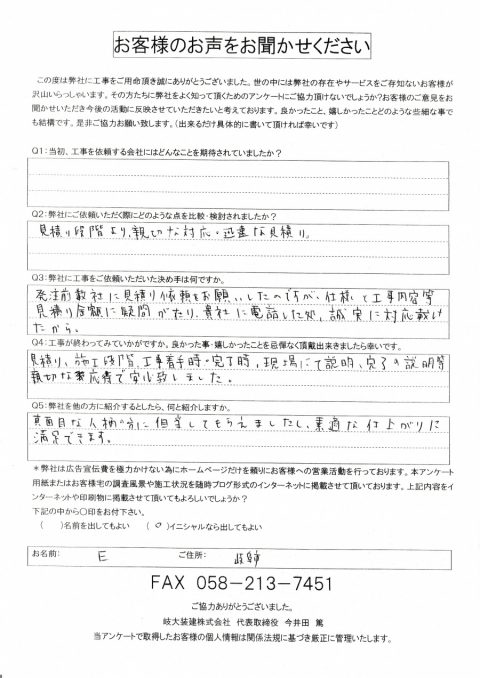 お客様のお声をお聞かせください
この度は弊社に工事をご用命頂き誠にありがとうございました。世の中には弊社の存在やサービスをご存知ないお客様が
沢山いらっしゃいます。その方たちに弊社をよく知って頂くためのアンケートにご協力頂けないでしょうか?お客様のご意見をお
聞かせいただき今後の活動に反映させていただきたいと考えております。良かったこと、嬉しかったことどのような些細な事で
も結構です。是非ご協力お願い致します。(出来るだけ具体的に書いて頂ければ幸いです)
Q1:当初、工事を依頼する会社にはどんなことを期待されていましたか?
Q2:弊社にご依頼いただく際にどのような点を比較・検討されましたか?
見積り段階より、親切な対応・迅速な見積り。
Q3:弊社に工事をご依頼いただいた決め手は何ですか。
発注前数社に見積り依頼をお願いしたのですが、仕様と工事内容等
見積り金額に疑問がたり、貴社に電話した処、誠実に対応戴け
たから。
Q4:工事が終わってみていかがですか。良かった事・嬉しかったことを忌憚なく頂戴出来きましたら幸いです。
見積り、施工段階、工事着手時・完了時、現場にて説明、完了の説明等
親切な対応で安心致しました。
Q5:弊社を他の方に紹介するとしたら、何と紹介しますか。
真面目な人柄の方に担当してもらえましたし、素適な仕上がりに
満足できます。
*弊社は広告宣伝費を極力かけない為にホームページだけを頼りにお客様への営業活動を行っております。本アンケート
用紙またはお客様宅の調査風景や施工状況を随時ブログ形式のインターネットに掲載させて頂いております。上記内容をイ
ンターネットや印刷物に掲載させて頂いてもよろしいでしょうか?
下記の中から〇印をお付下さい。
( )名前を出してもよい (○)イニシャルなら出してもよい
お名前: E ご住所: 岐阜市
FAX 058-213-7451
ご協力ありがとうございました。
岐大装建株式会社 代表取締役 今井田 篤
当アンケートで取得したお客様の個人情報は関係法規に基づき厳正に管理いたします。